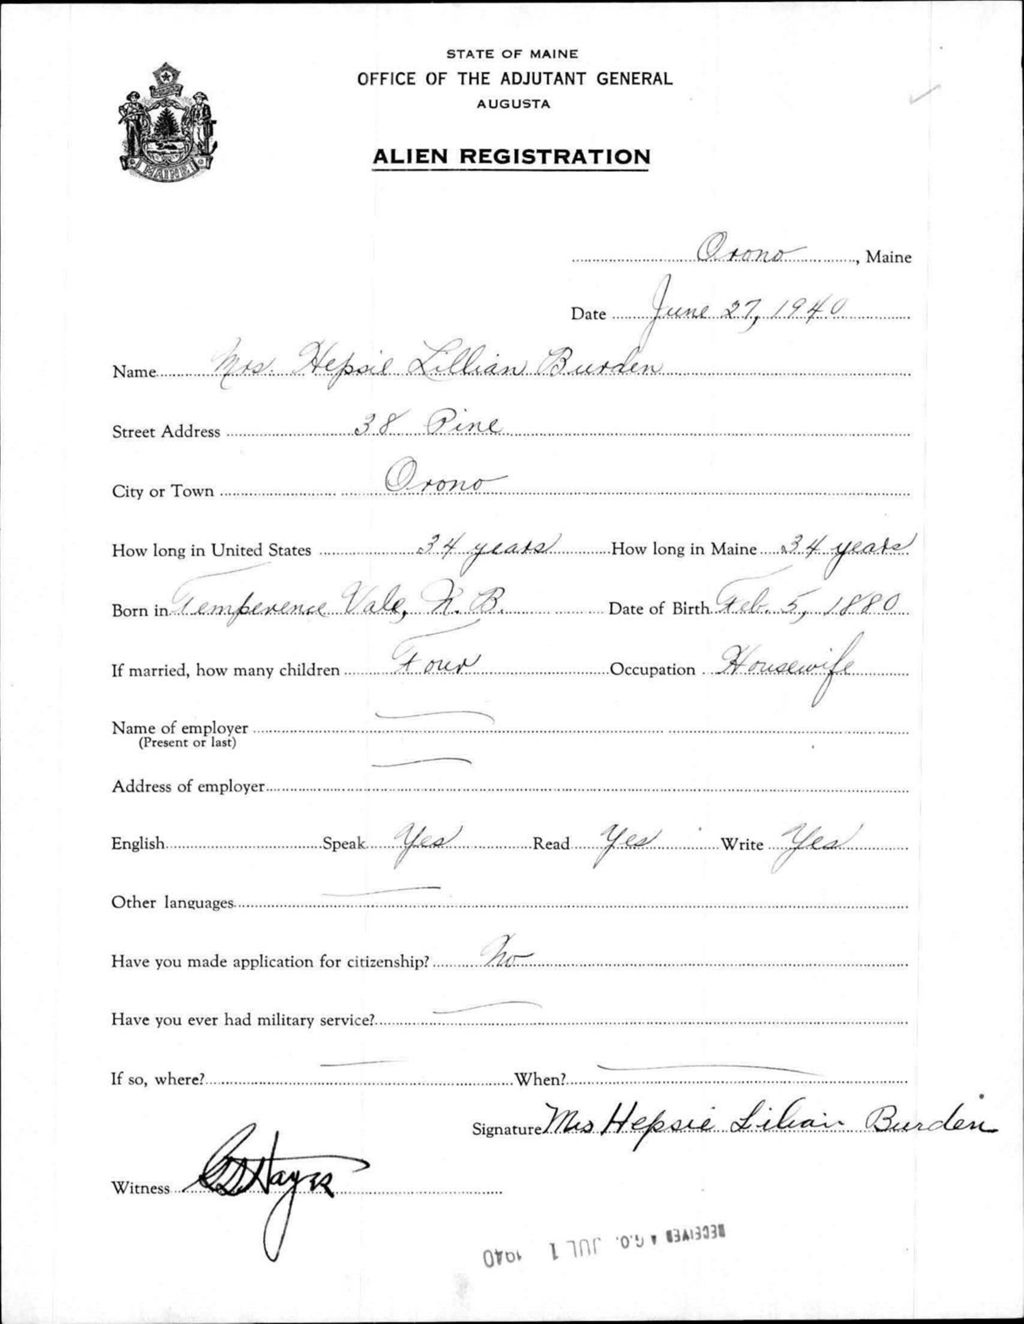 STATE OF MAINE
OFFICE OF THE ADJUTANT GENERAL
AUGUSTA
ALIEN REGISTRATION
MAINE
Orono, Maine
Date June 27, 1940
Name Mrs. Hepsie Lillian Burden
Street Address 38 Pine
City or Town Orono
How long in United States 34 years How long in Maine 34 years
Born in Temperence Vale, N.B. Date of Birth Feb. 5, 1880
If married, how many children Four Occupation Housewife
Name of employer
(Present or last)
Address of employer
English Speak Yes Read Yes Write Yes
Other languages
Have you made application for citizenship? No
Have you ever had military service?
If so, where? When?
Signature Mrs Hepsie Lilian Burden
Witness Hayes
RECEIVED A.G.O. JUL 1 1940